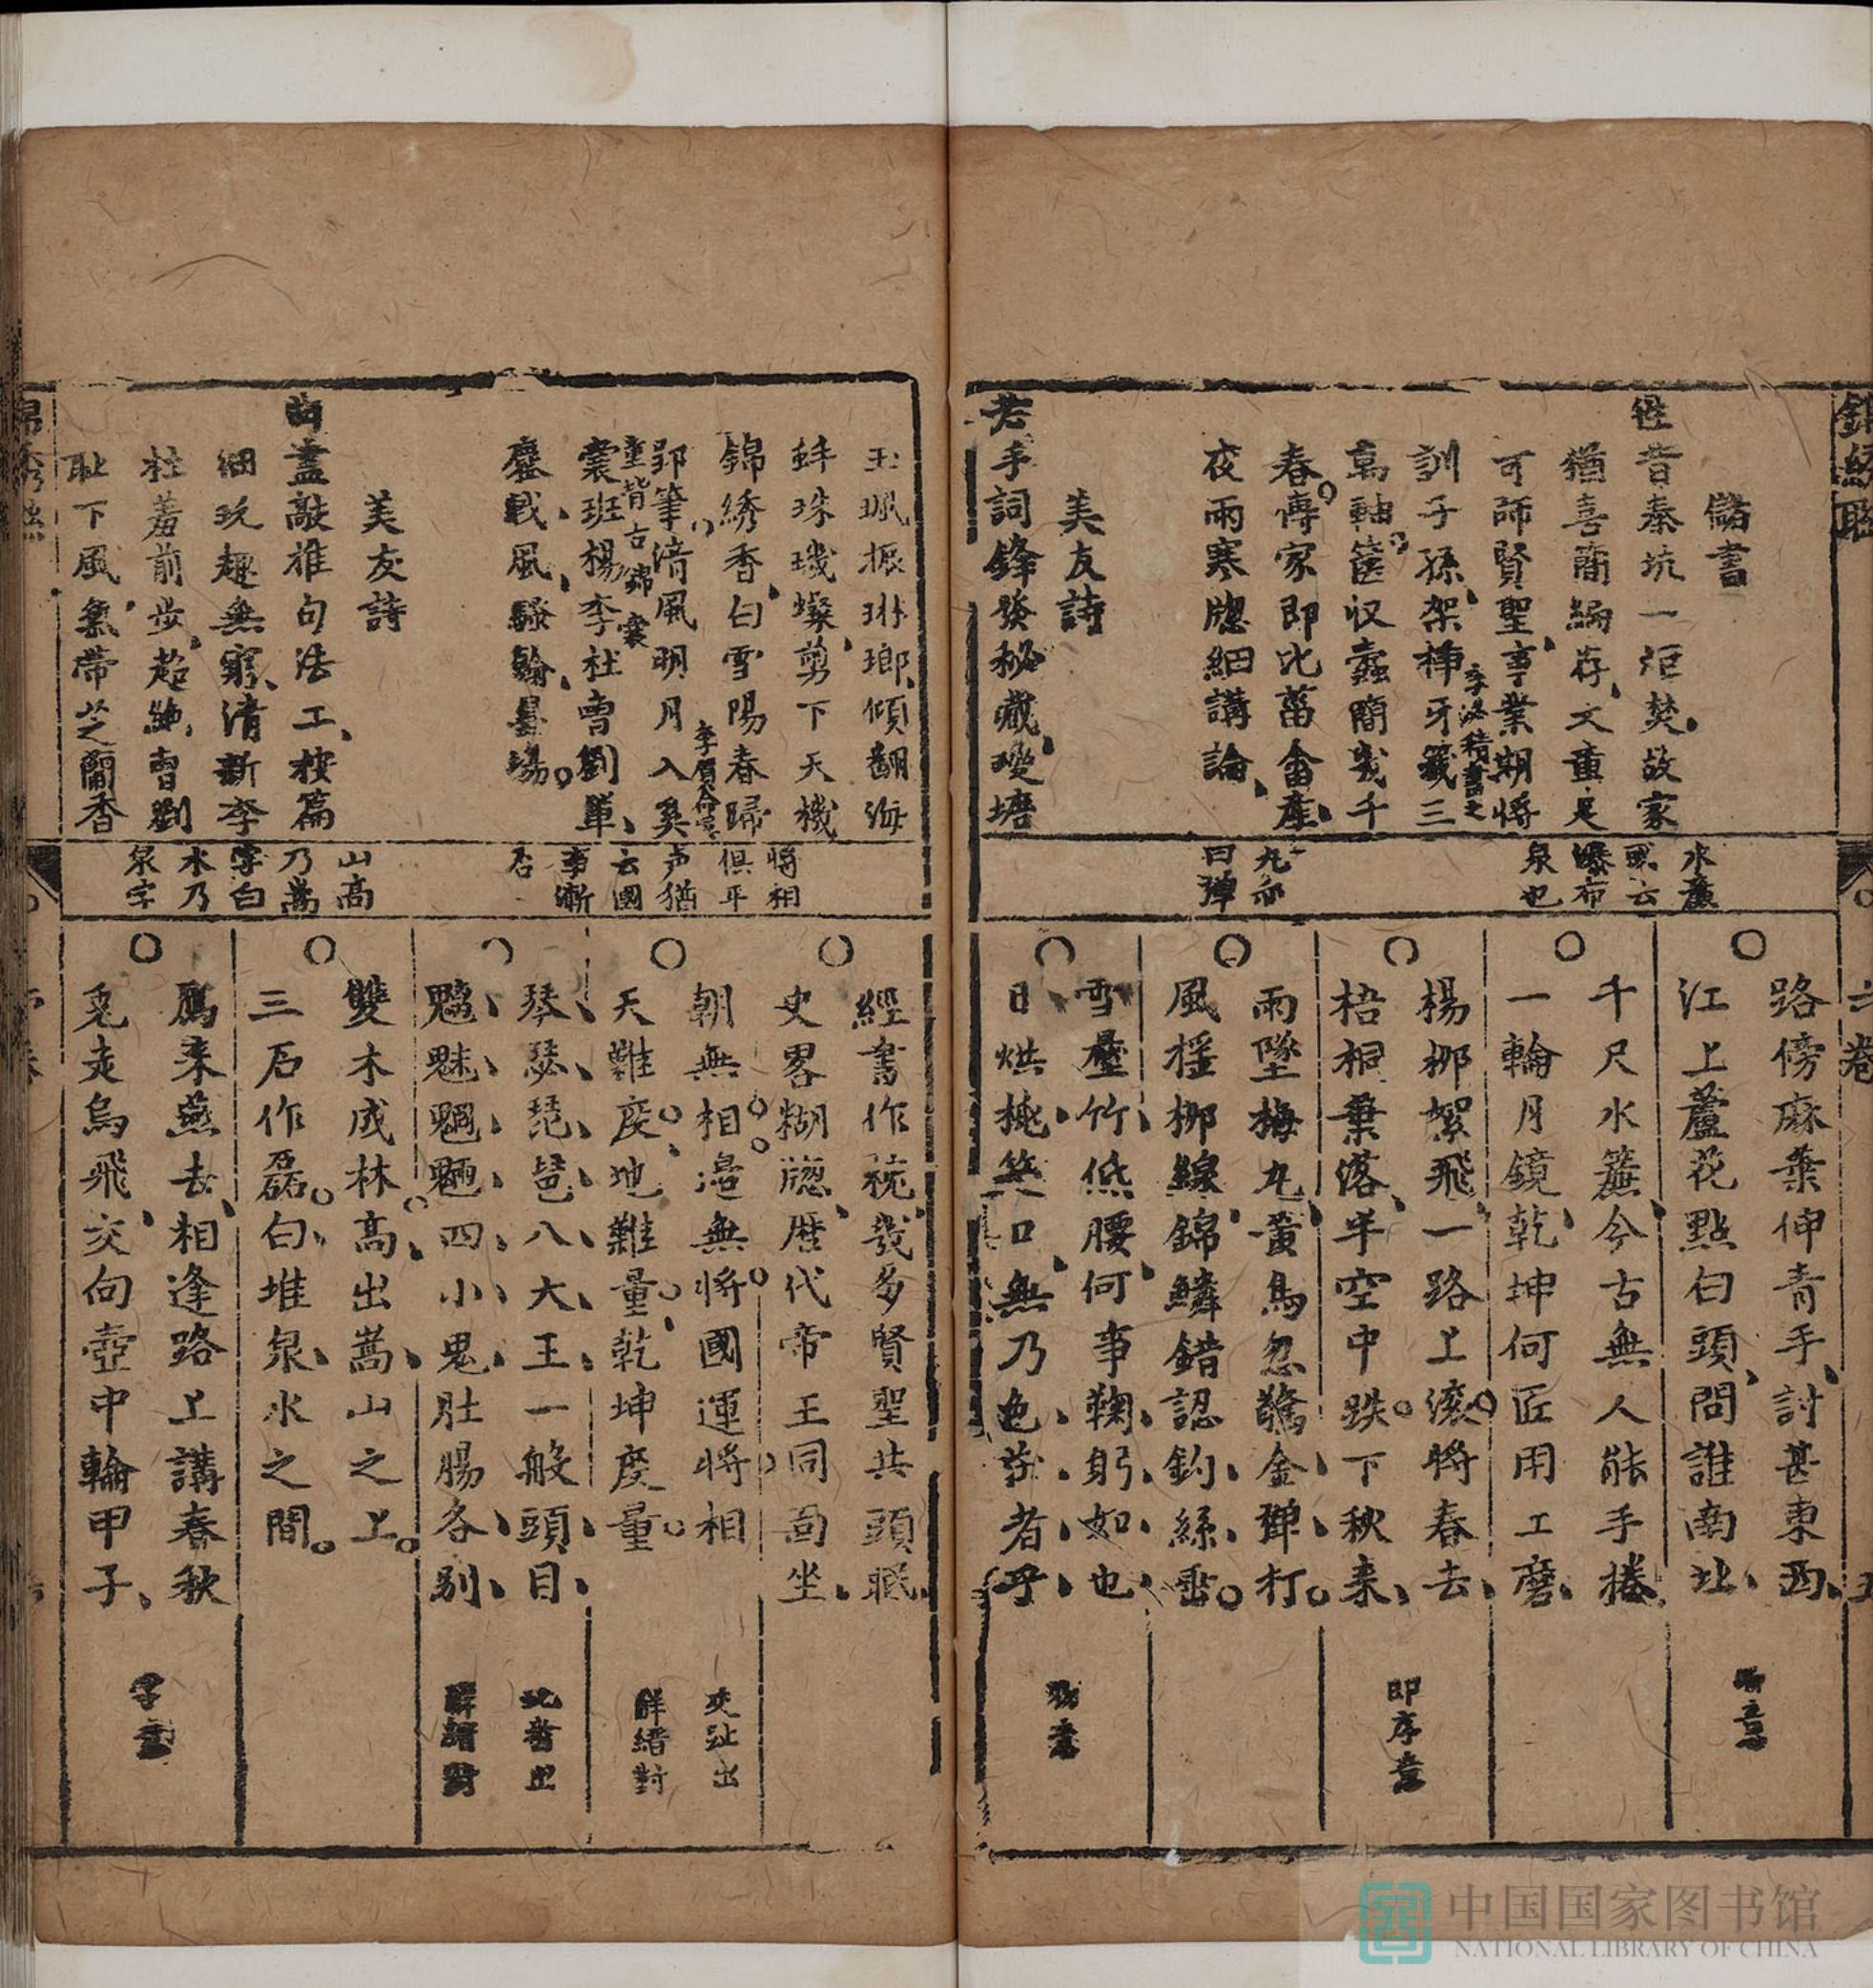 儲書
徃昔秦坑一炬焚故家
猶喜簡編存文重是
可師賢聖事業期將
訓子孫架揷牙籤三
李泌積書之
萬軸篋収蠹簡幾千
春傳家即此菑畬產
夜雨寒牕細講論
美友詩
老手詞鋒發秘藏瓊塘
水簾
泉也
九亦
曰彈
路傍麻葉伸青手討甚東西
江上蘆花點白頭問誰南北
千尺水簾今古無人能手捲
一輪月鏡乾坤何匠用工磨
楊柳絮飛一路上滚將春去
梧桐葉落半空中跌下秋来
即序意
雨墜梅丸黄鳥忽驚金彈打
風摇柳線錦鱗錯認釣絲垂
雪壓竹低腰何事鞠躬如也
日烘桃笑口無乃色荘者乎
玉珮振琳瑯傾翻海
蚌珠璣燦剪下天機
錦綉香白雪陽春歸
郢筆清風明月入奚
童背古錦囊
囊班楊李杜曹劉軰
鏖戰風騷翰墨塲
美友詩
曲盡敲推句法工按篇
細玩趣無窮清新李
杜羞前步超絶曹劉
耻下風氣帶芝蘭香
將相
俱平
声猶
云國
事漸
否
山高
乃嵩
字白
水乃
泉字
經書作枕幾多賢聖共頭眠
史畧糊牕歷代帝王同面坐
朝無相邉無將國運將相
天難度地難量乾坤度量
交趾出
解縉對
琴瑟琵琶八大王一般頭目
魑魅魍魎四小鬼肚腸各別
北番出
解縉對
雙木成林高出嵩山之上
三石作磊白堆泉水之間
鴈来燕去相逢路上講春秋
兎走烏飛交句壺中輪甲子
錦綉聯
六卷
五